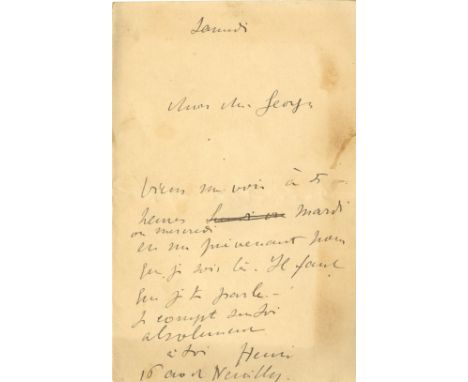 Samedi
mon cher Georges
Viens me voir à 5
heures mardi
ou mercredi
en me prévenant pour
que je sois là. Il faut
que je te parle. —
Je compte sur toi
absolument
à toi Henri
16 Neuilly.